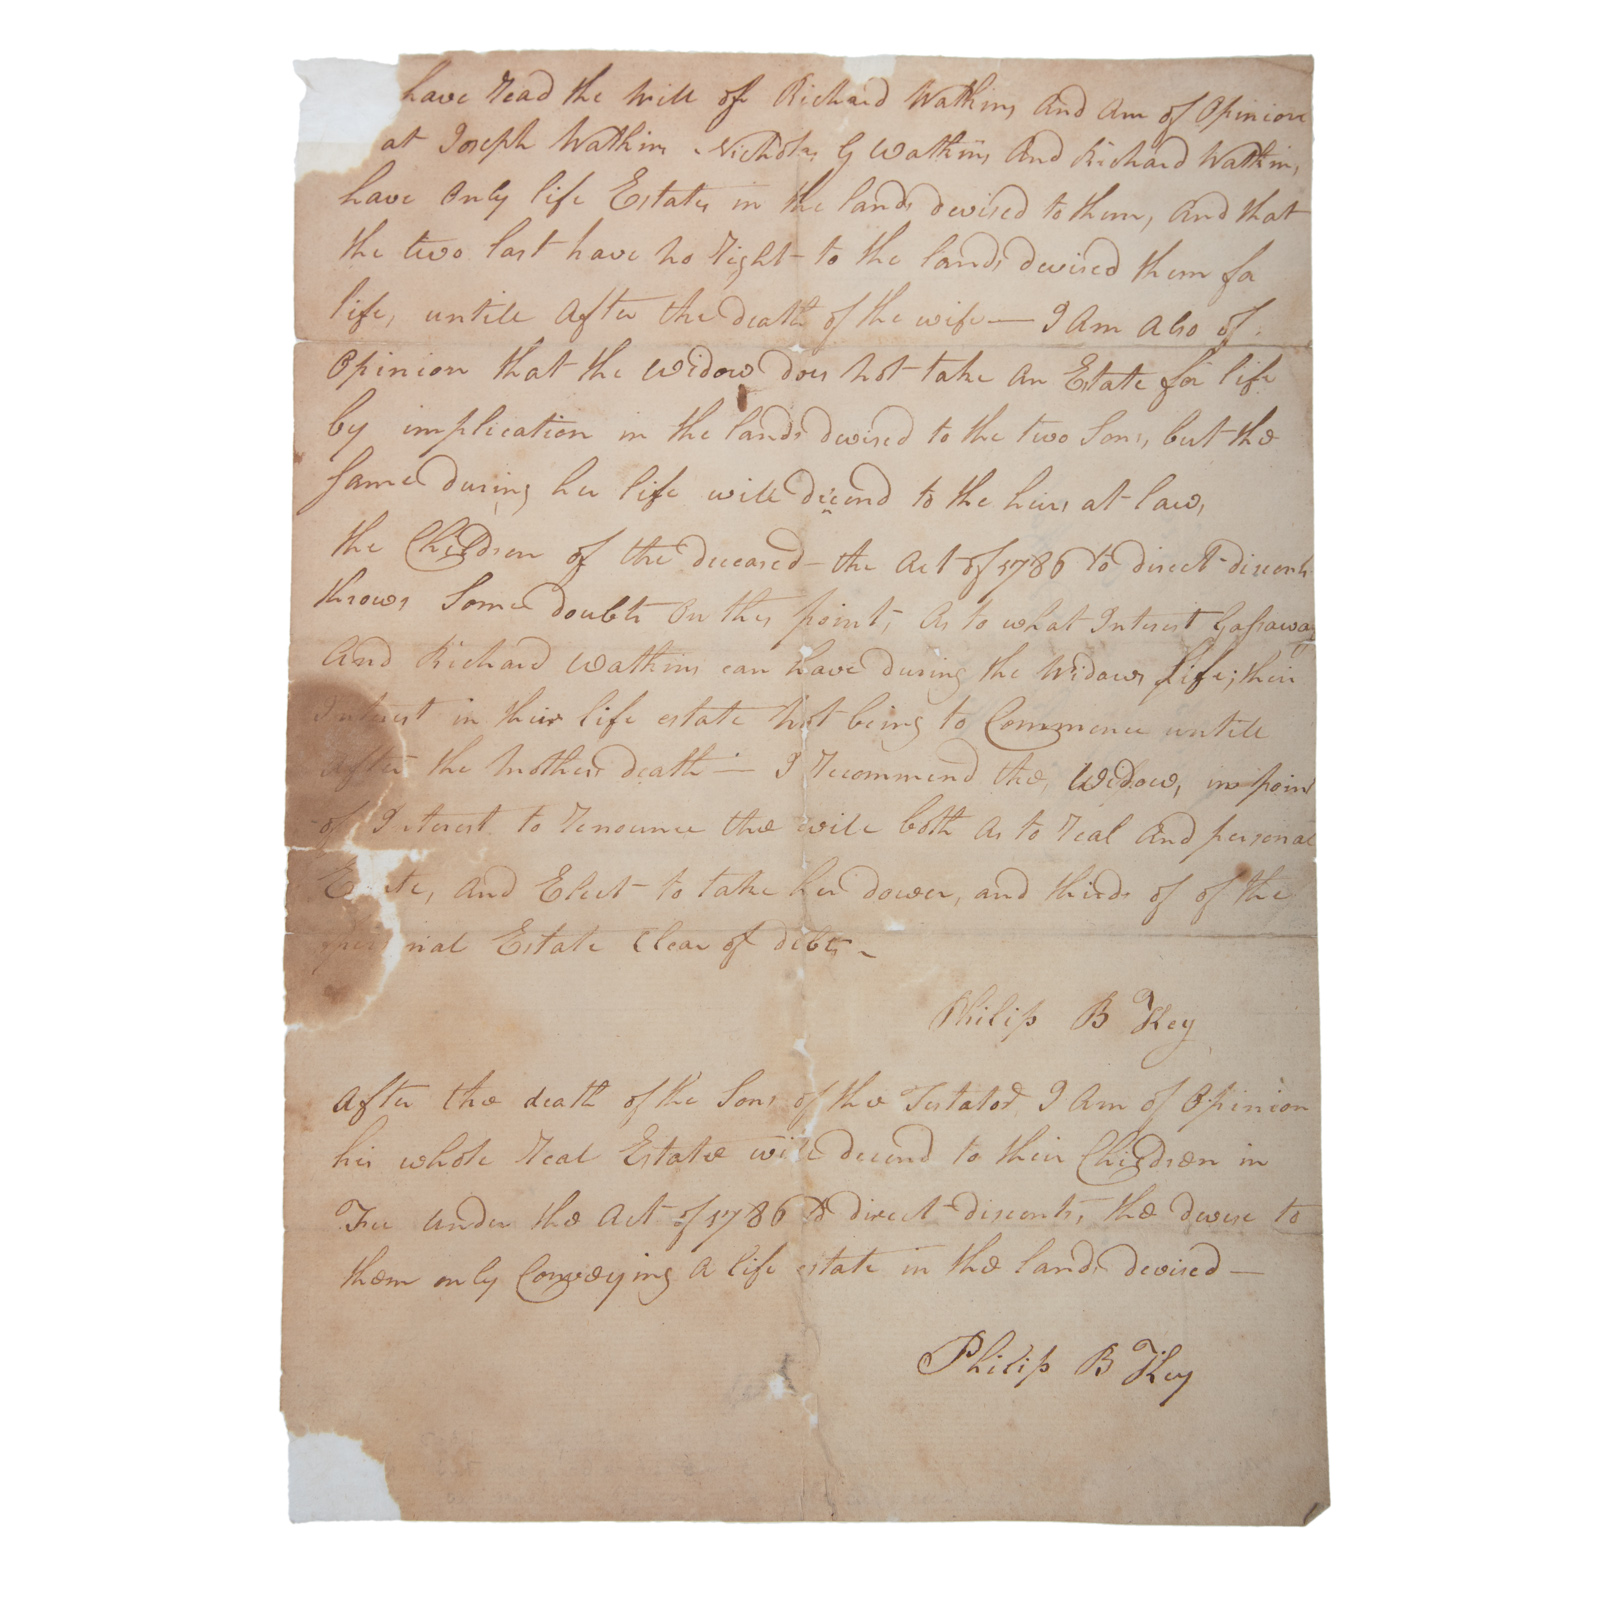 have read the will of Richard Watkins and am of Opinion
at Joseph Watkins Nicholas G Watkins and Richard Watkins,
have only life Estates in the lands devised to them, and that
the two last have no right to the lands devised them for
life, untill after the death of the wife — I am also of
Opinion that the Widow does not take an Estate for life
by implication in the lands devised to the two Sons, but the
same during her life will decend to the heirs at law,
the Children of the deceased — the Act of 1786 to direct discents
throws some doubts on this point, as to what Interest Gassaway
and Richard Watkins can have during the Widows life; their
Interest in their life estate not being to Commence untill
after the Mothers death — I recommend the Widow, in poin
of Interest to renounce the will both as to real and personal
E te, and Elect to take her dower, and thirds of of the
nal Estate clear of debts —
Philip B Key
After the death of the Sons of the Testator I am of Opinion
his whole real Estate will decend to their Children in
Fee under the Act of 1786 to direct discents, the devise to
them only Conveying a life estate in the lands devised —
Philip B Key